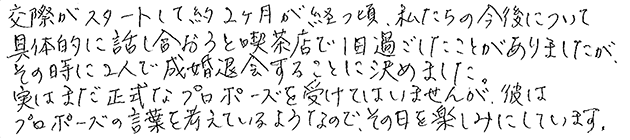 交際がスタートして約2ヶ月が経つ頃、私たちの今後について
具体的に話し合おうと喫茶店で1日過ごしたことがありましたが、
その時に2人で成婚退会することに決めました。
実はまだ正式なプロポーズを受けてはいませんが、彼は
プロポーズの言葉を考えているようなので、その日を楽しみにしています。